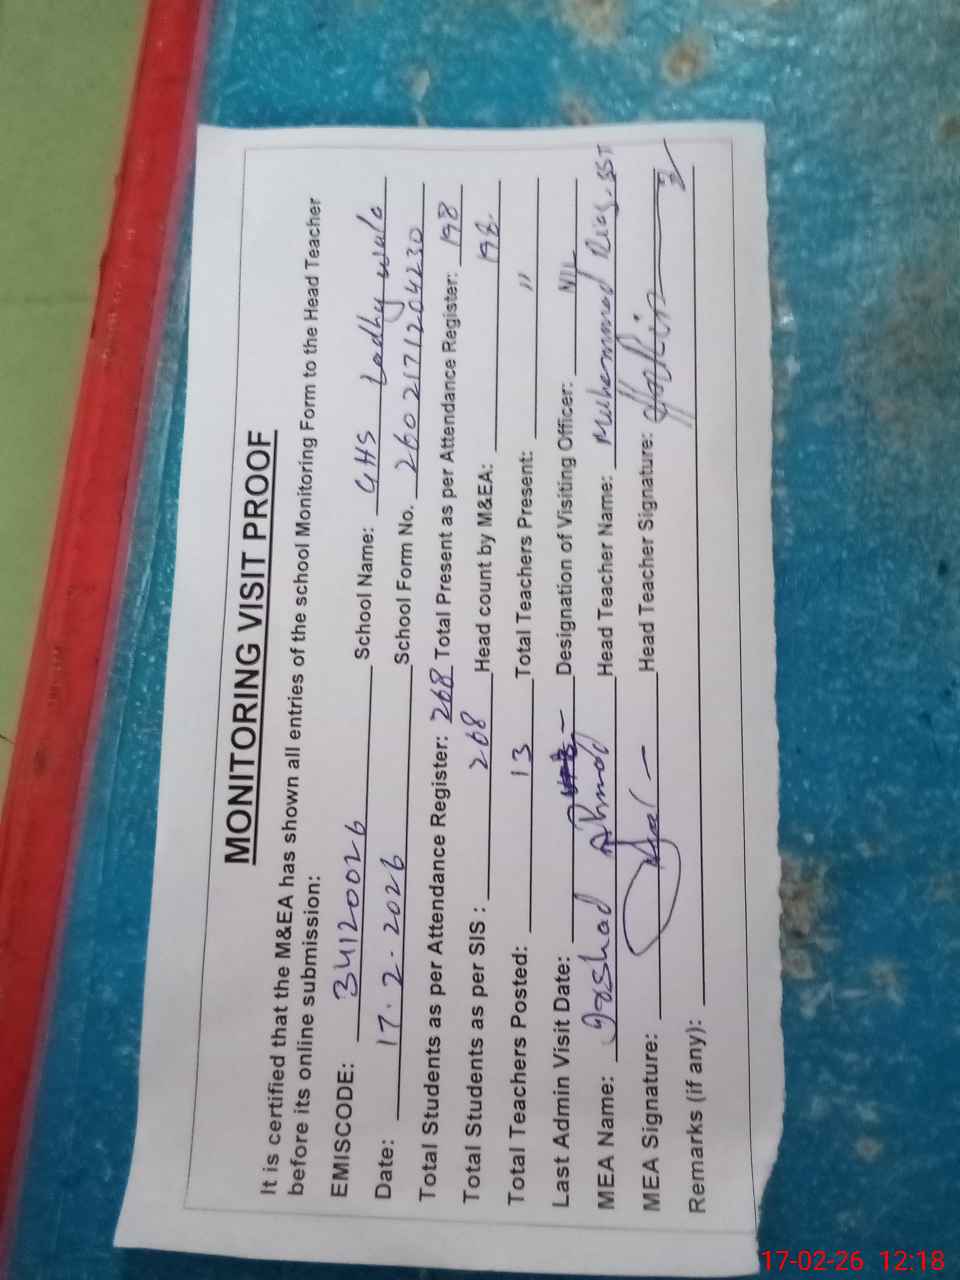 MONITORING VISIT PROOF
It is certified that the M&EA has shown all entries of the school Monitoring Form to the Head Teacher
before its online submission:
EMISCODE: 34120026 School Name: GHS Ladhy wala
Date: 17.2.2026 School Form No. 2602171204230
Total Students as per Attendance Register: 268 Total Present as per Attendance Register: 198
Total Students as per SIS : 268 Head count by M&EA: 198.
Total Teachers Posted: 13 Total Teachers Present: 11
Last Admin Visit Date: Designation of Visiting Officer: NIL
MEA Name: Irshad Ahmad Head Teacher Name: Muhammad Riaz. SST
MEA Signature: Head Teacher Signature:
Remarks (if any):
17-02-26 12:18